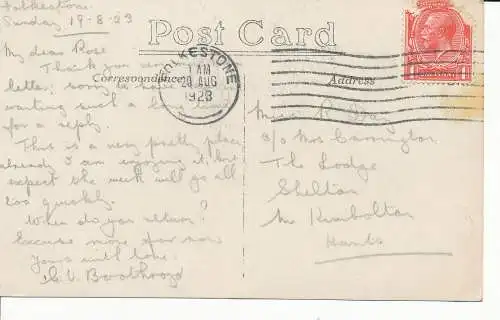 Folkestone.
Sunday 19-8-23
Post Card
My dear Rose
Thank you very
Correspondence
Address
letter, sorry to have
waiting such a long time
for a reply.
This is a very pretty place
already I am enjoying it, but
expect the week will go all
too quickly.
When do you return?
Excuse more for now
Yours with love.
FOLKESTONE
1 AM
20 AUG
1923
Miss R.
c/o Mrs Carrington
The Lodge
Shelton
Nr Kimbolton
Hunts